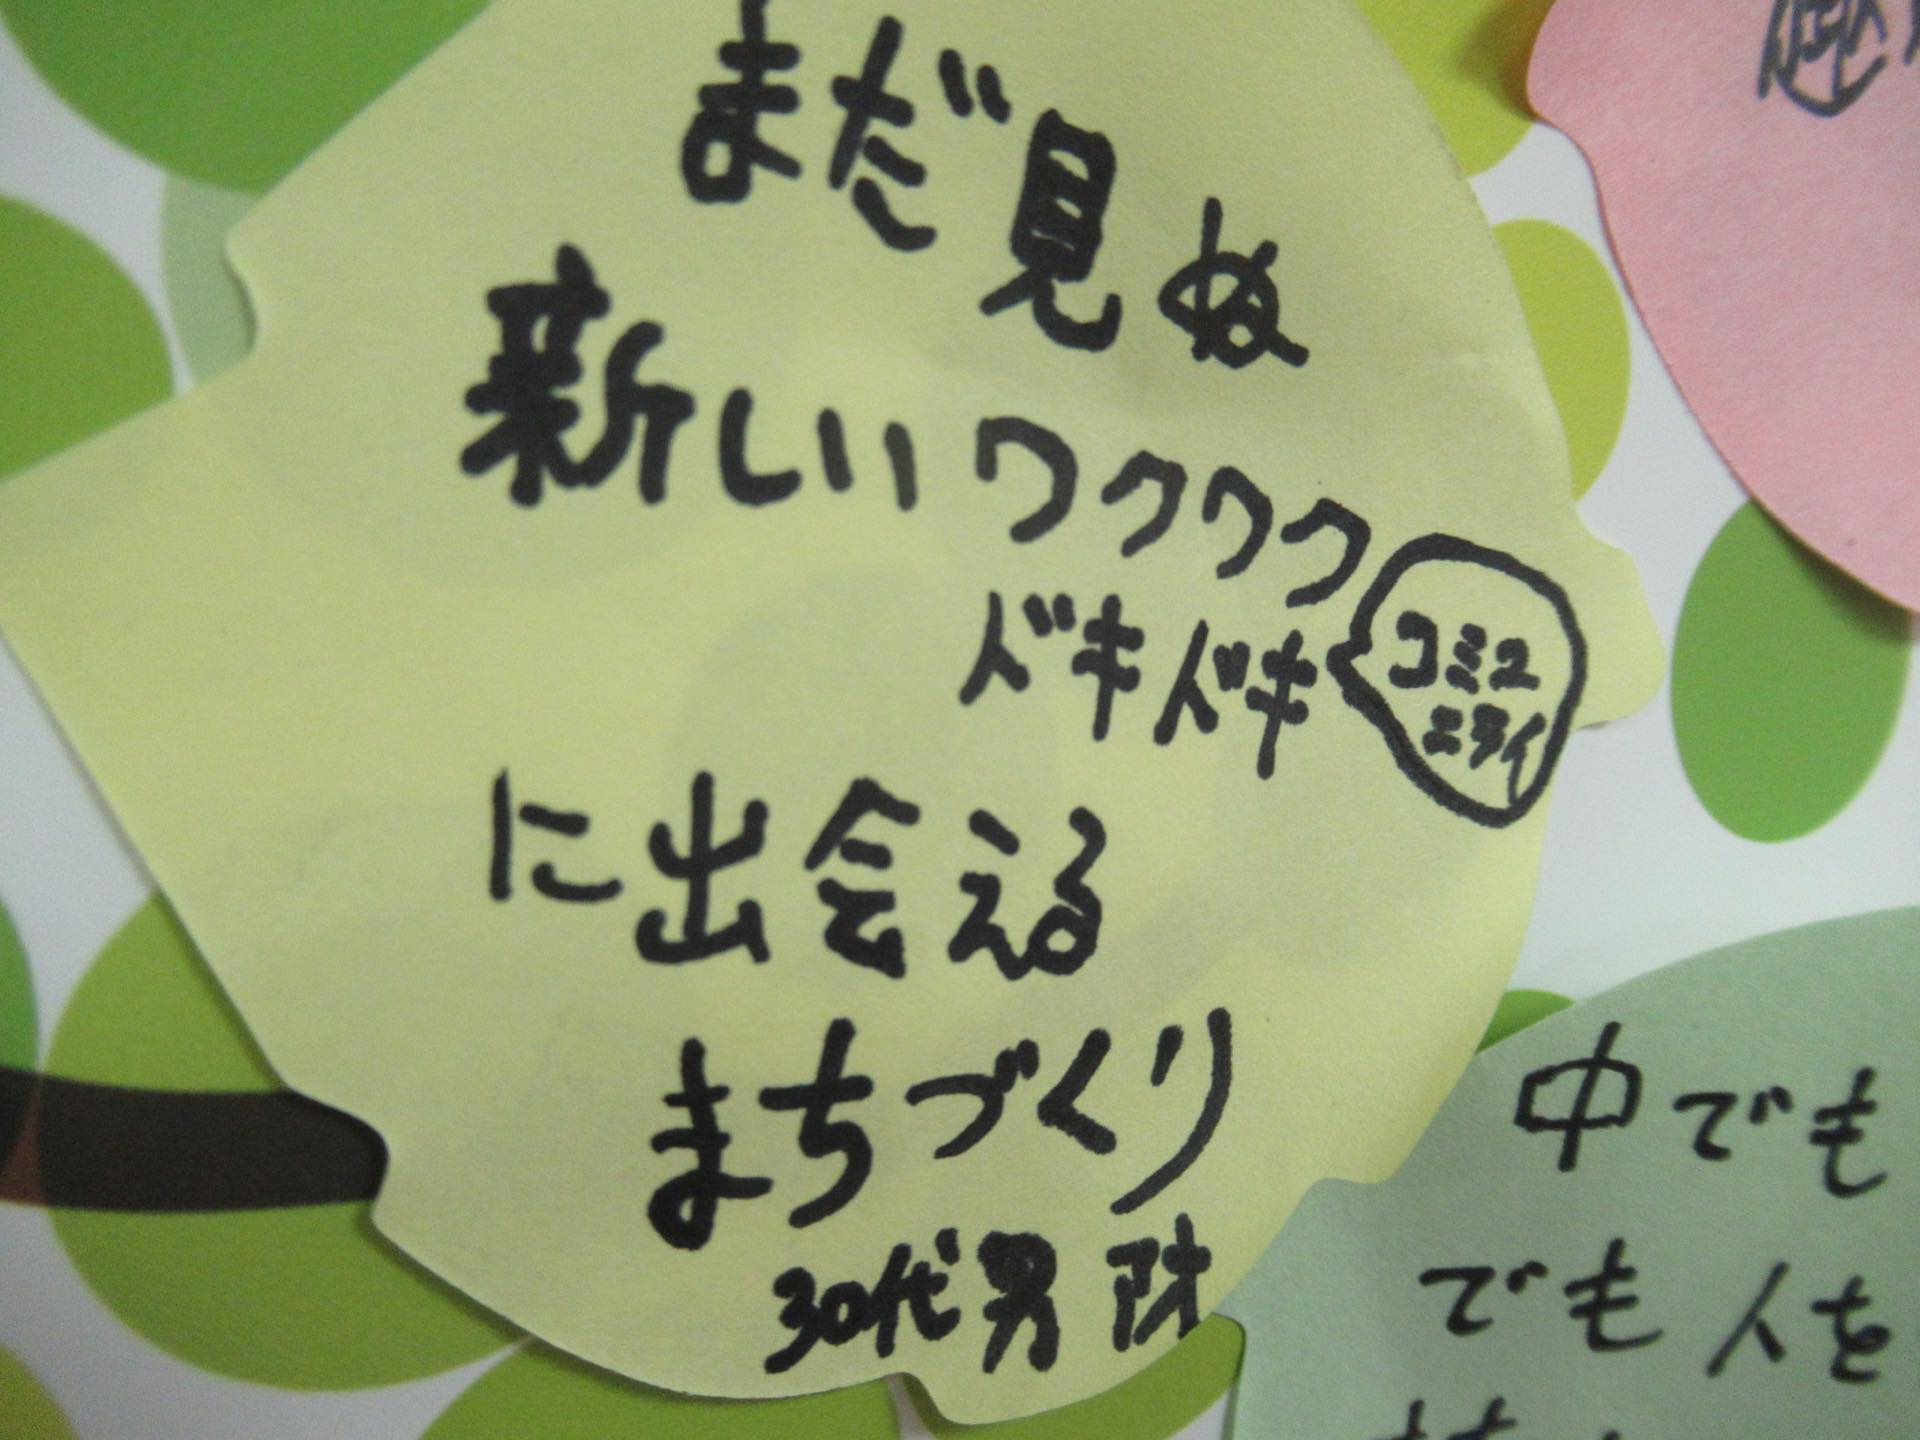 まだ見ぬ
新しいワクワク
ドキドキ
コミュ
ニティ
に出会える
まちづくり
30代男
中でも
でも人を